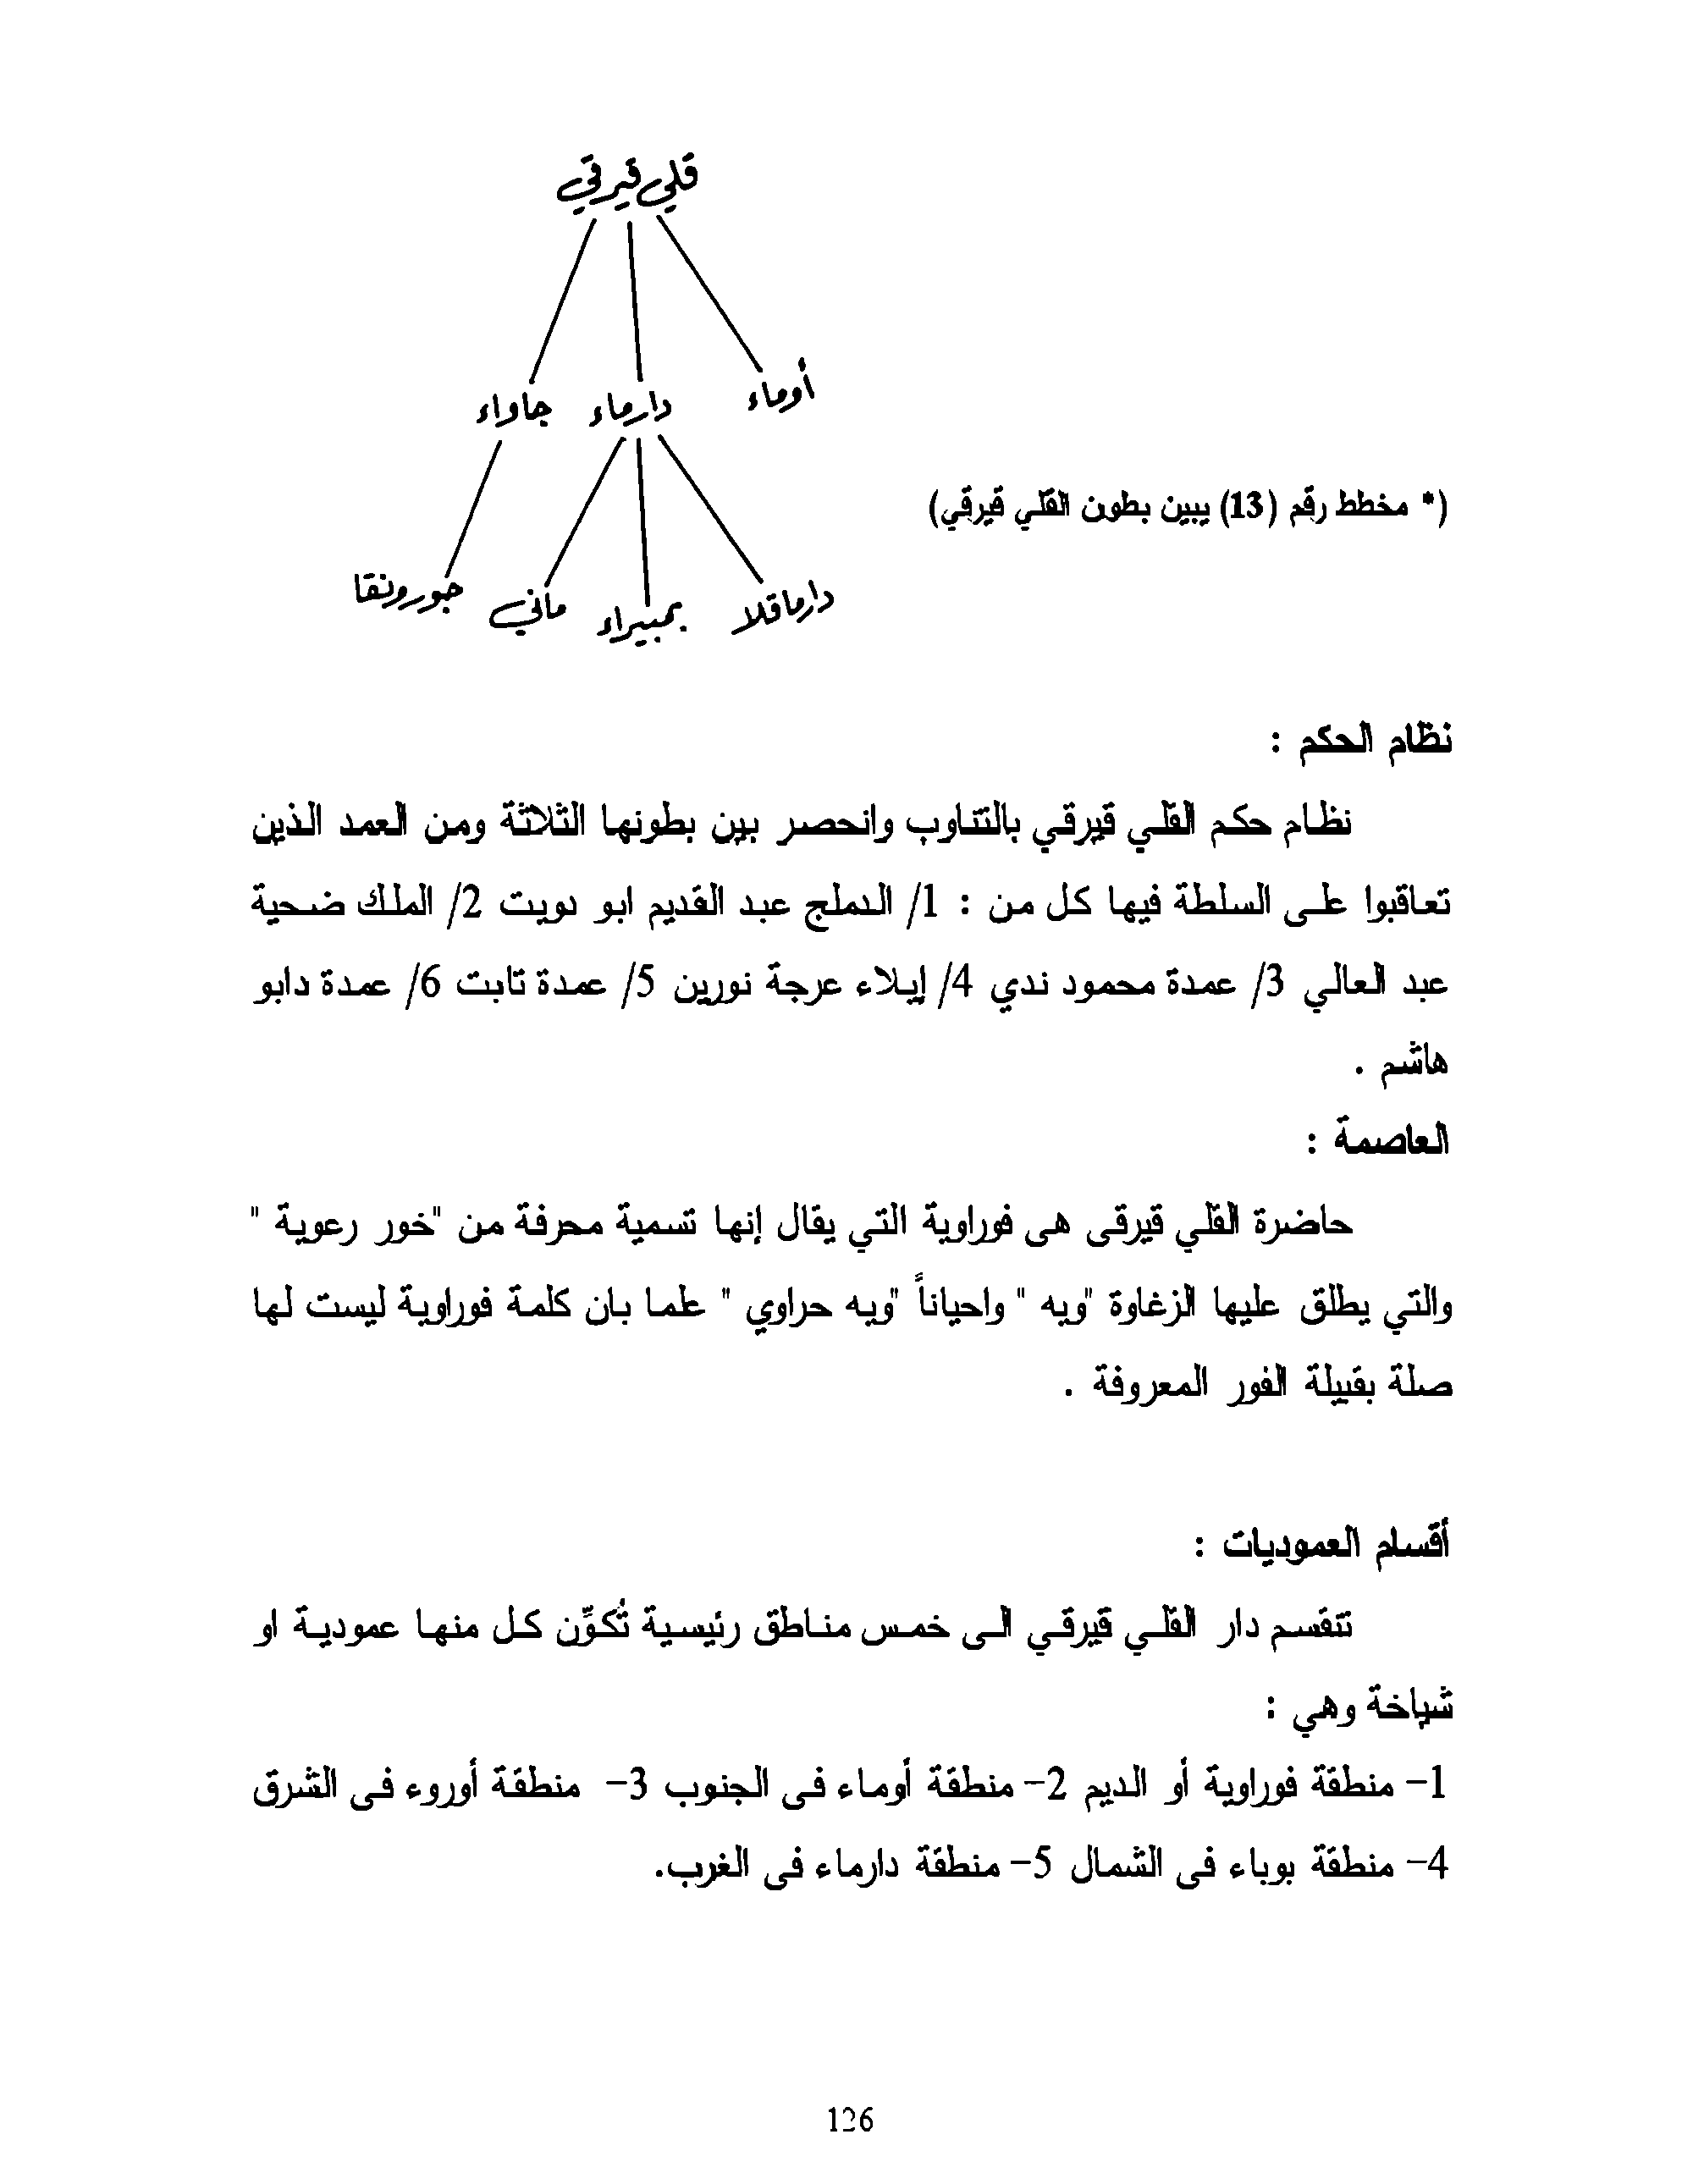 قلي قيرقي
أوماء دارماء جاواء
(* مخطط رقم (13) يبين بطون القلي قيرقي)
دارماقلا بمبيراء ماني جورونقا
نظام الحكم :
نظام حكم القلي قيرقي بالتناوب وانحصر بين بطونها الثلاثة ومن العمد الذين
تعاقبوا على السلطة فيها كل من : 1/ الدملج عبد القديم ابو دويت 2/ الملك ضحية
عبد العالي 3/ عمدة محمود ندي 4/ إيلاء عرجة نورين 5/ عمدة تابت 6/ عمدة دابو
هاشم .
العاصمة :
حاضرة القلي قيرقى هى فوراوية التي يقال إنها تسمية محرفة من "خور رعوية "
والتي يطلق عليها الزغاوة "ويه " واحياناً "ويه حراوي " علما بان كلمة فوراوية ليست لها
صلة بقبيلة الفور المعروفة .
أقسام العموديات :
تنقسم دار القلي قيرقي الى خمس مناطق رئيسية تُكوِّن كل منها عمودية او
شياخة وهي :
1- منطقة فوراوية أو الديم 2- منطقة أوماء فى الجنوب 3- منطقة أوروء فى الشرق
4- منطقة بوباء فى الشمال 5- منطقة دارماء فى الغرب.
126